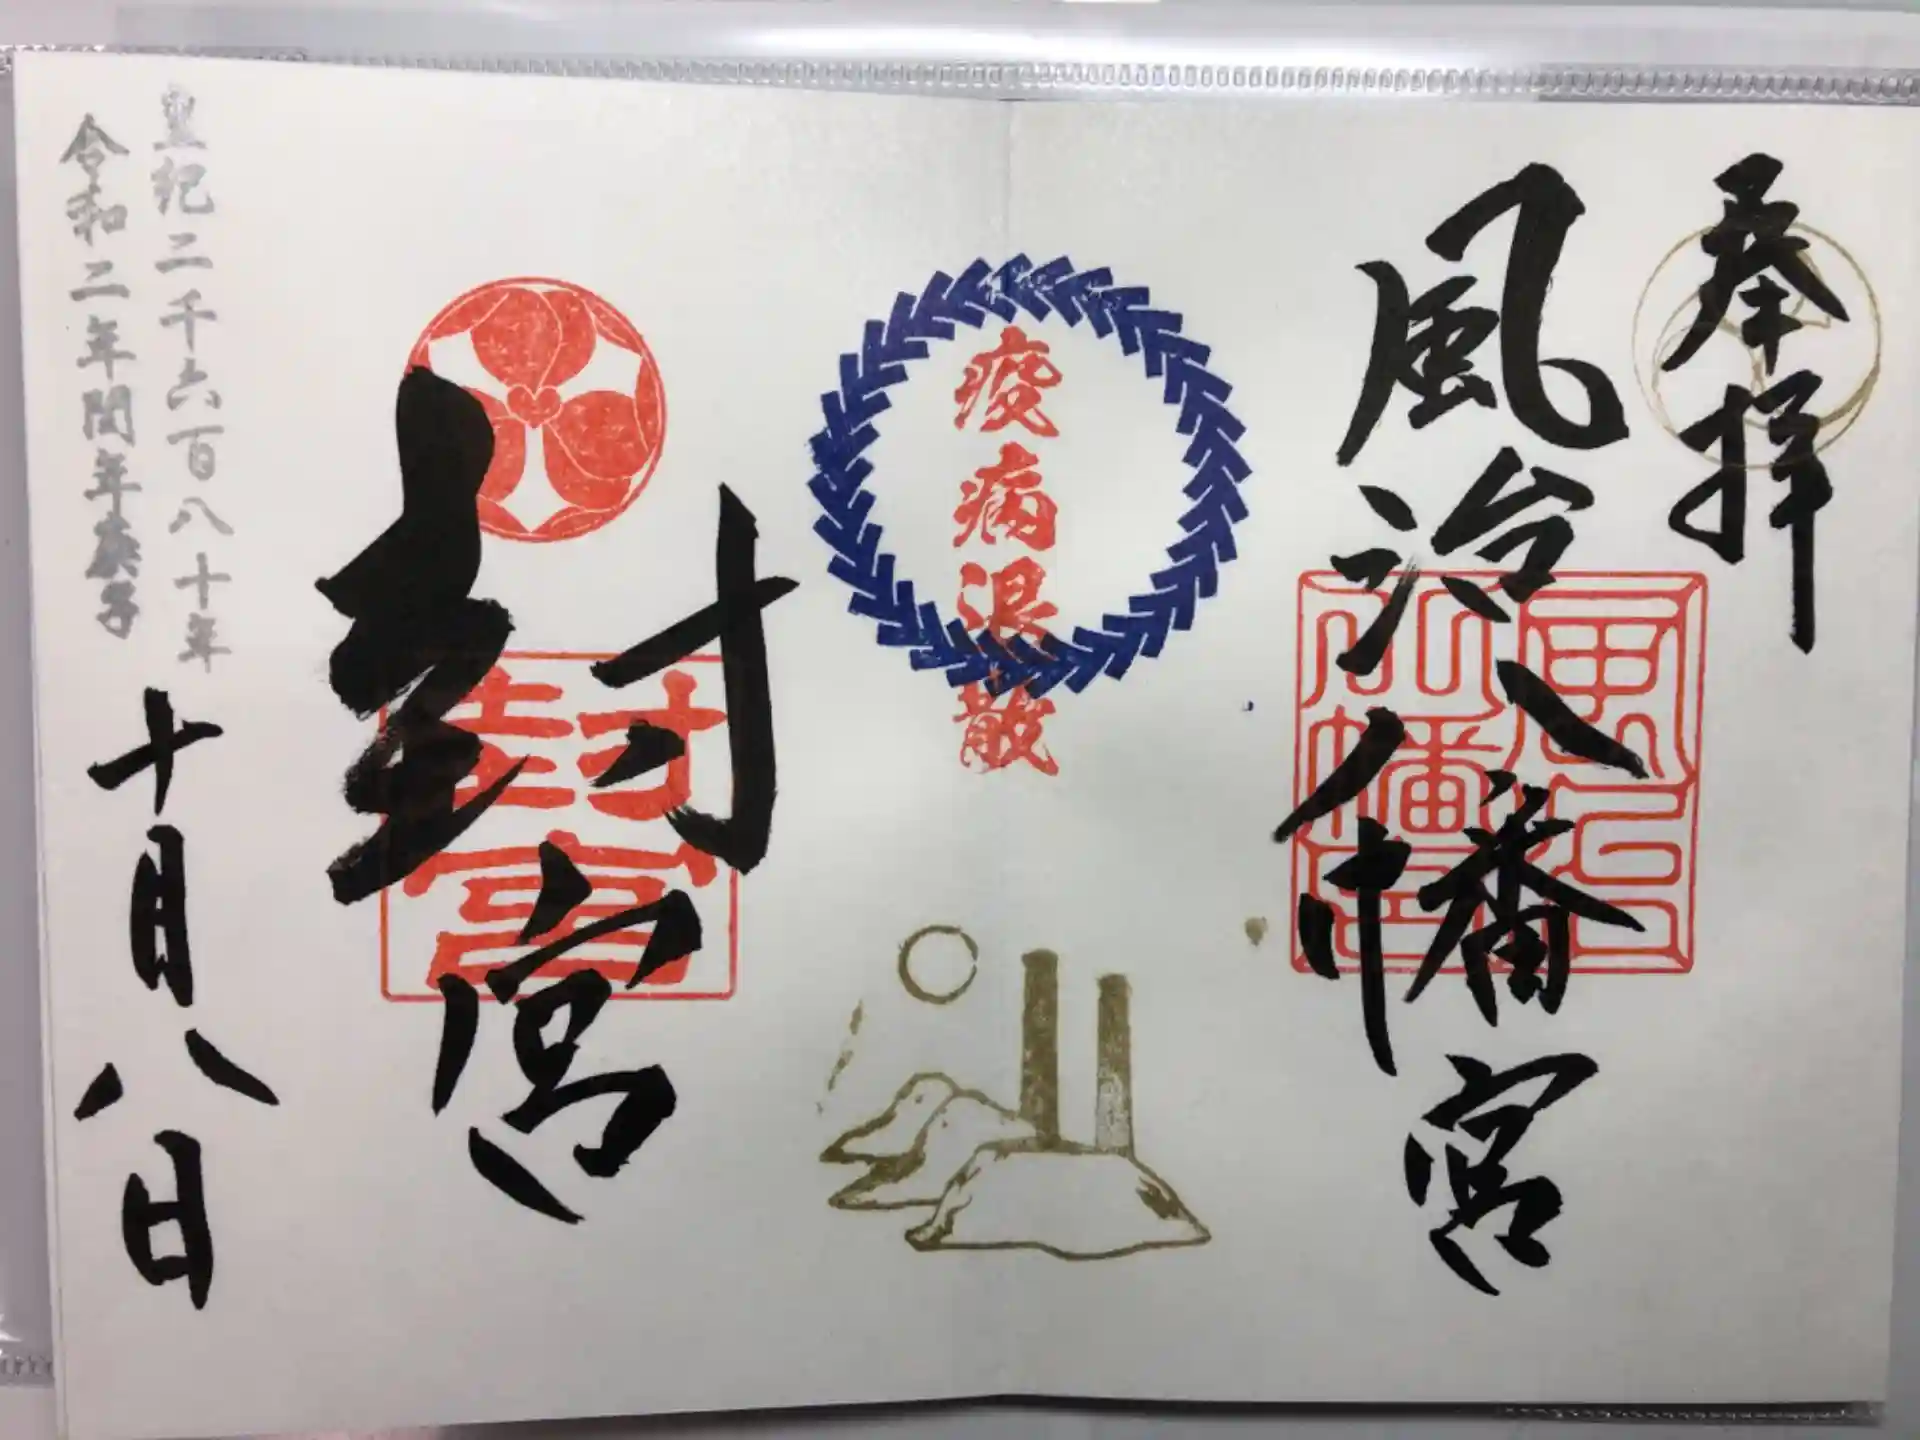 奉拝
風治八幡宮
風治八幡宮
疫病退散
封宮
封宮
皇紀二千六百八十年
令和二年閏年庚子
十月八日